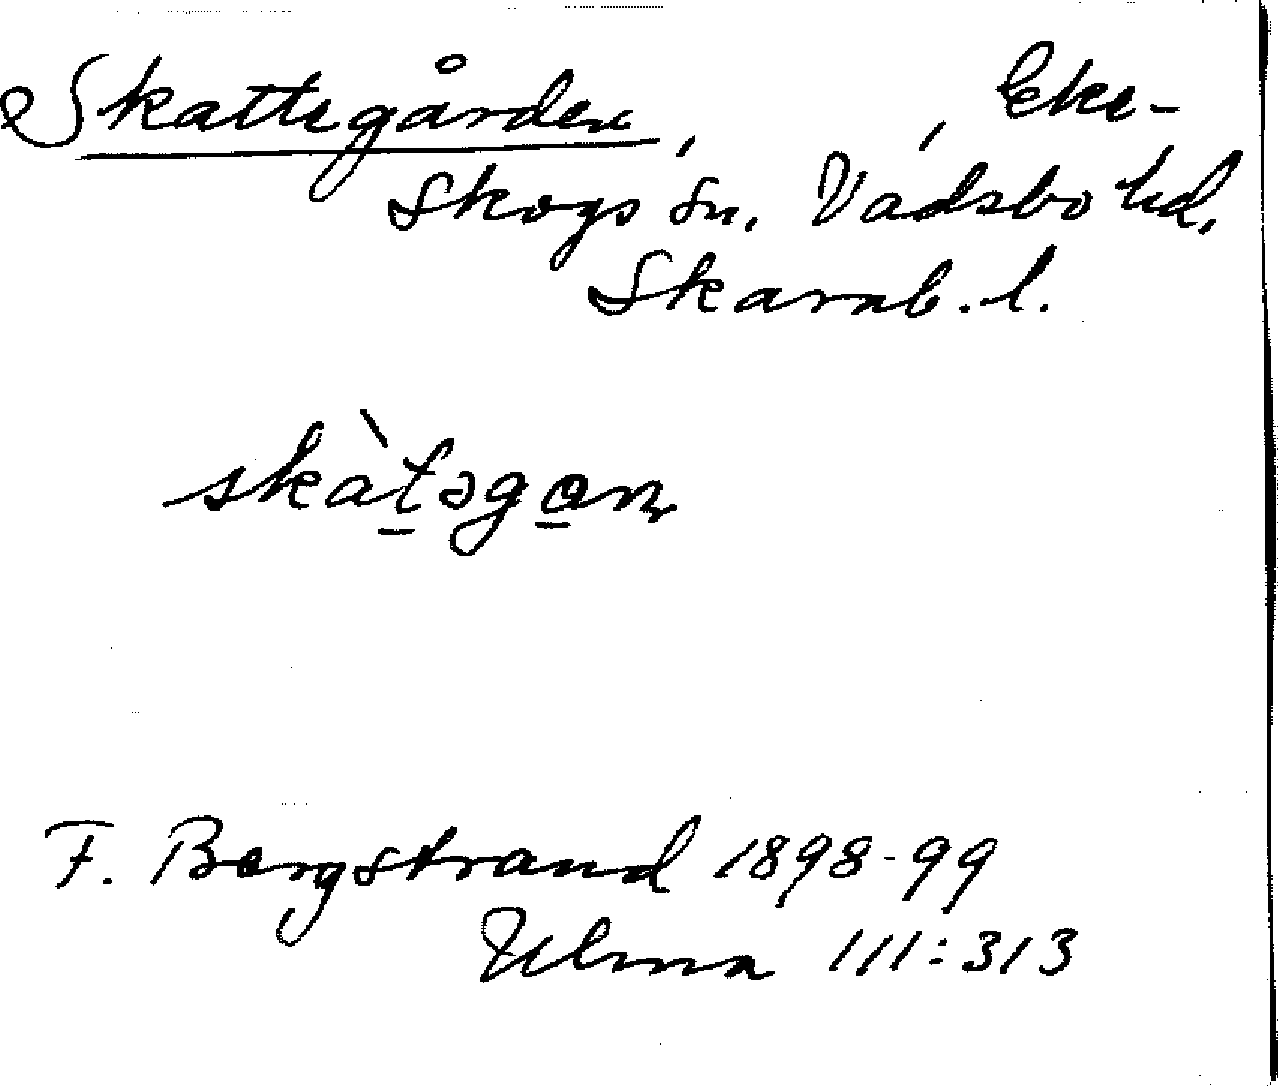 Skattegården, , Eke-
skogs sn. Vadsbo hd.
Skarab. l.
skàt̠əga̠ɳ
F. Bergstrand 1898-99
Ulma 111:313